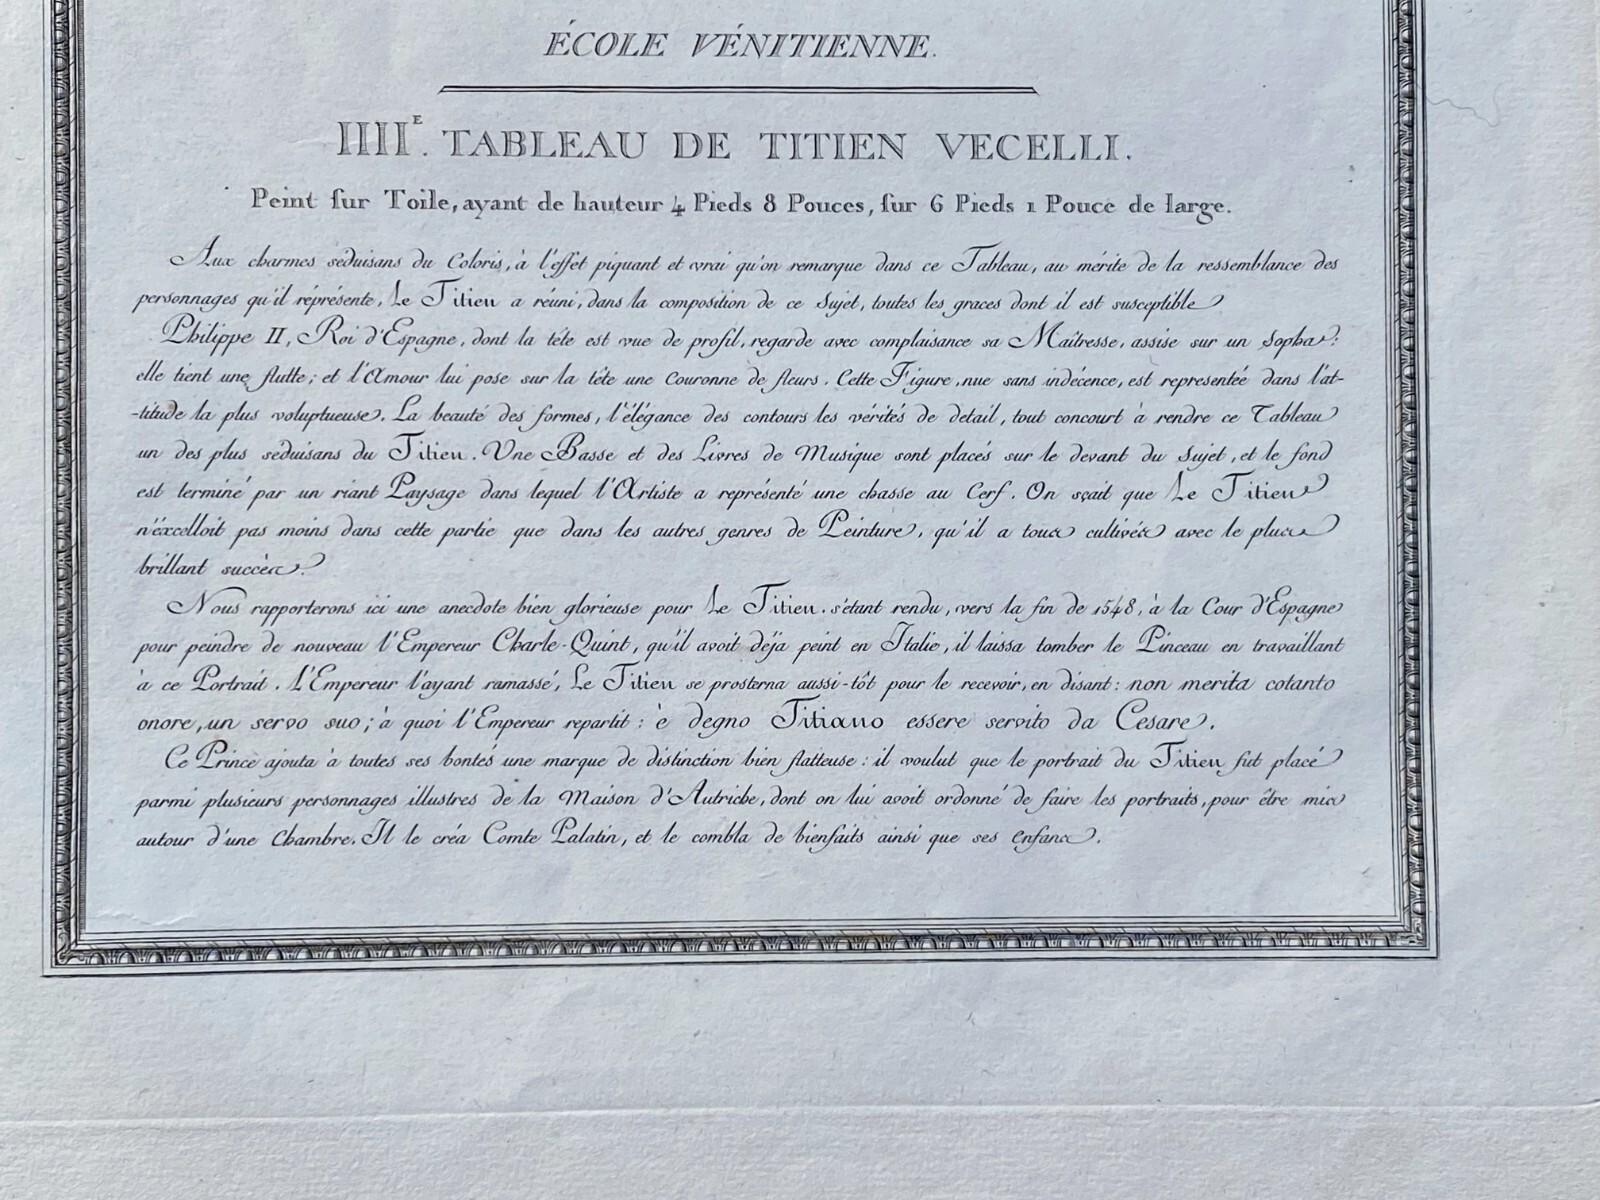 ÉCOLE VÉNITIENNE.
IIIIE. TABLEAU DE TITIEN VECELLI.
Peint sur Toile, ayant de hauteur 4 Pieds 8 Pouces, sur 6 Pieds 1 Pouce de large.
Aux charmes séduisans du Coloris, à l'effét piquant et vrai qu'on remarque dans ce Tableau, au mérite de la ressemblance des
personnages qu'il réprésente, Le Titien a réuni, dans la composition de ce Sujet, toutes les graces dont il est susceptible
Philippe II, Roi d'Espagne, dont la téte est vue de profil, regarde avec complaisance sa Maîtresse, assise sur un Sopha:
elle tient une flutte; et l'Amour lui pose sur la téte une Couronne de fleurs. Cette Figure, nue sans indécence, est representée dans l'at-
-titude la plus voluptueuse. La beauté des formes, l'élégance des contours les vérités de détail, tout concourt à rendre ce Tableau
un des plus séduisans du Titien. Une Basse et des Livres de Musique sont placés sur le devant du Sujet, et le fond
est terminé par un riant Paysage dans lequel l'Artiste a représenté une chasse au Cerf. On sçait que Le Titien
n'éxcelloit pas moins dans cette partie que dans les autres genres de Peinture, qu'il a tous cultivés avec le plus
brillant succès.
Nous rapporterons ici une anecdote bien glorieuse pour Le Titien. s'étant rendu, vers la fin de 1548, à la Cour d'Espagne
pour peindre de nouveau l'Empereur Charle-Quint, qu'il avoit déja peint en Italie, il laissa tomber le Pinceau en travaillant
à ce Portrait. L'Empereur l'ayant ramassé, Le Titien se prosterna aussi-tôt pour le recevoir, en disant: non merita cotanto
onore, un servo suo; à quoi l'Empereur repartit: è degno Titiano essere servito da Cesare.
Ce Prince ajouta à toutes ses bontés une marque de distinction bien flatteuse: il voulut que le portrait du Titien fut placé
parmi plusieurs personnages illustres de la Maison d'Autriche, dont on lui avoit ordonné de faire les portraits, pour être mis
autour d'une Chambre. Il le créa Comte Palatin, et le combla de bienfaits ainsi que ses Enfans.